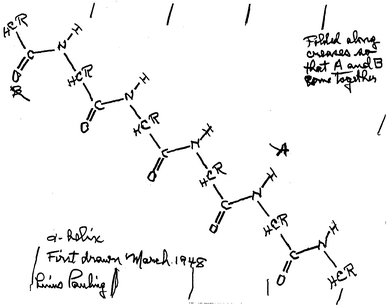 HCR
C
N
H
O
B
HCR
C
N
H
O
HCR
C
N
H
O
HCR
C
N
H
O
A
HCR
C
N
H
O
HCR
Folded along
creases so
that A and B
come together
α-Helix
First drawn March 1948
Linus Pauling